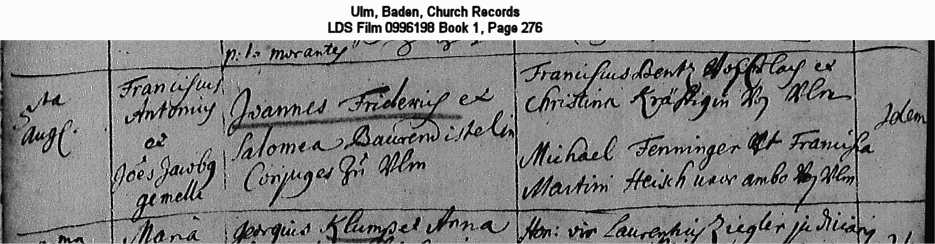 Ulm, Baden, Church Records
LDS Film 0996198 Book 1, Page 276
p: t: morantes
5ta
Aug.
Franciscus
Antonius
et
Joes Jacobg
gemelli
Joannes Friderich et
Salomea Baurendistelin
Conjuges Zu Vlm
Franciscus Bentz et
Christina Kräftigin Vlm
Michael Fenninger Et Francisca
Martini Heisch uxor ambo Vlm
Idem
Maria
Georgius Klumpel Anna
Hon: vir Laurentius Ziegler judiciarij